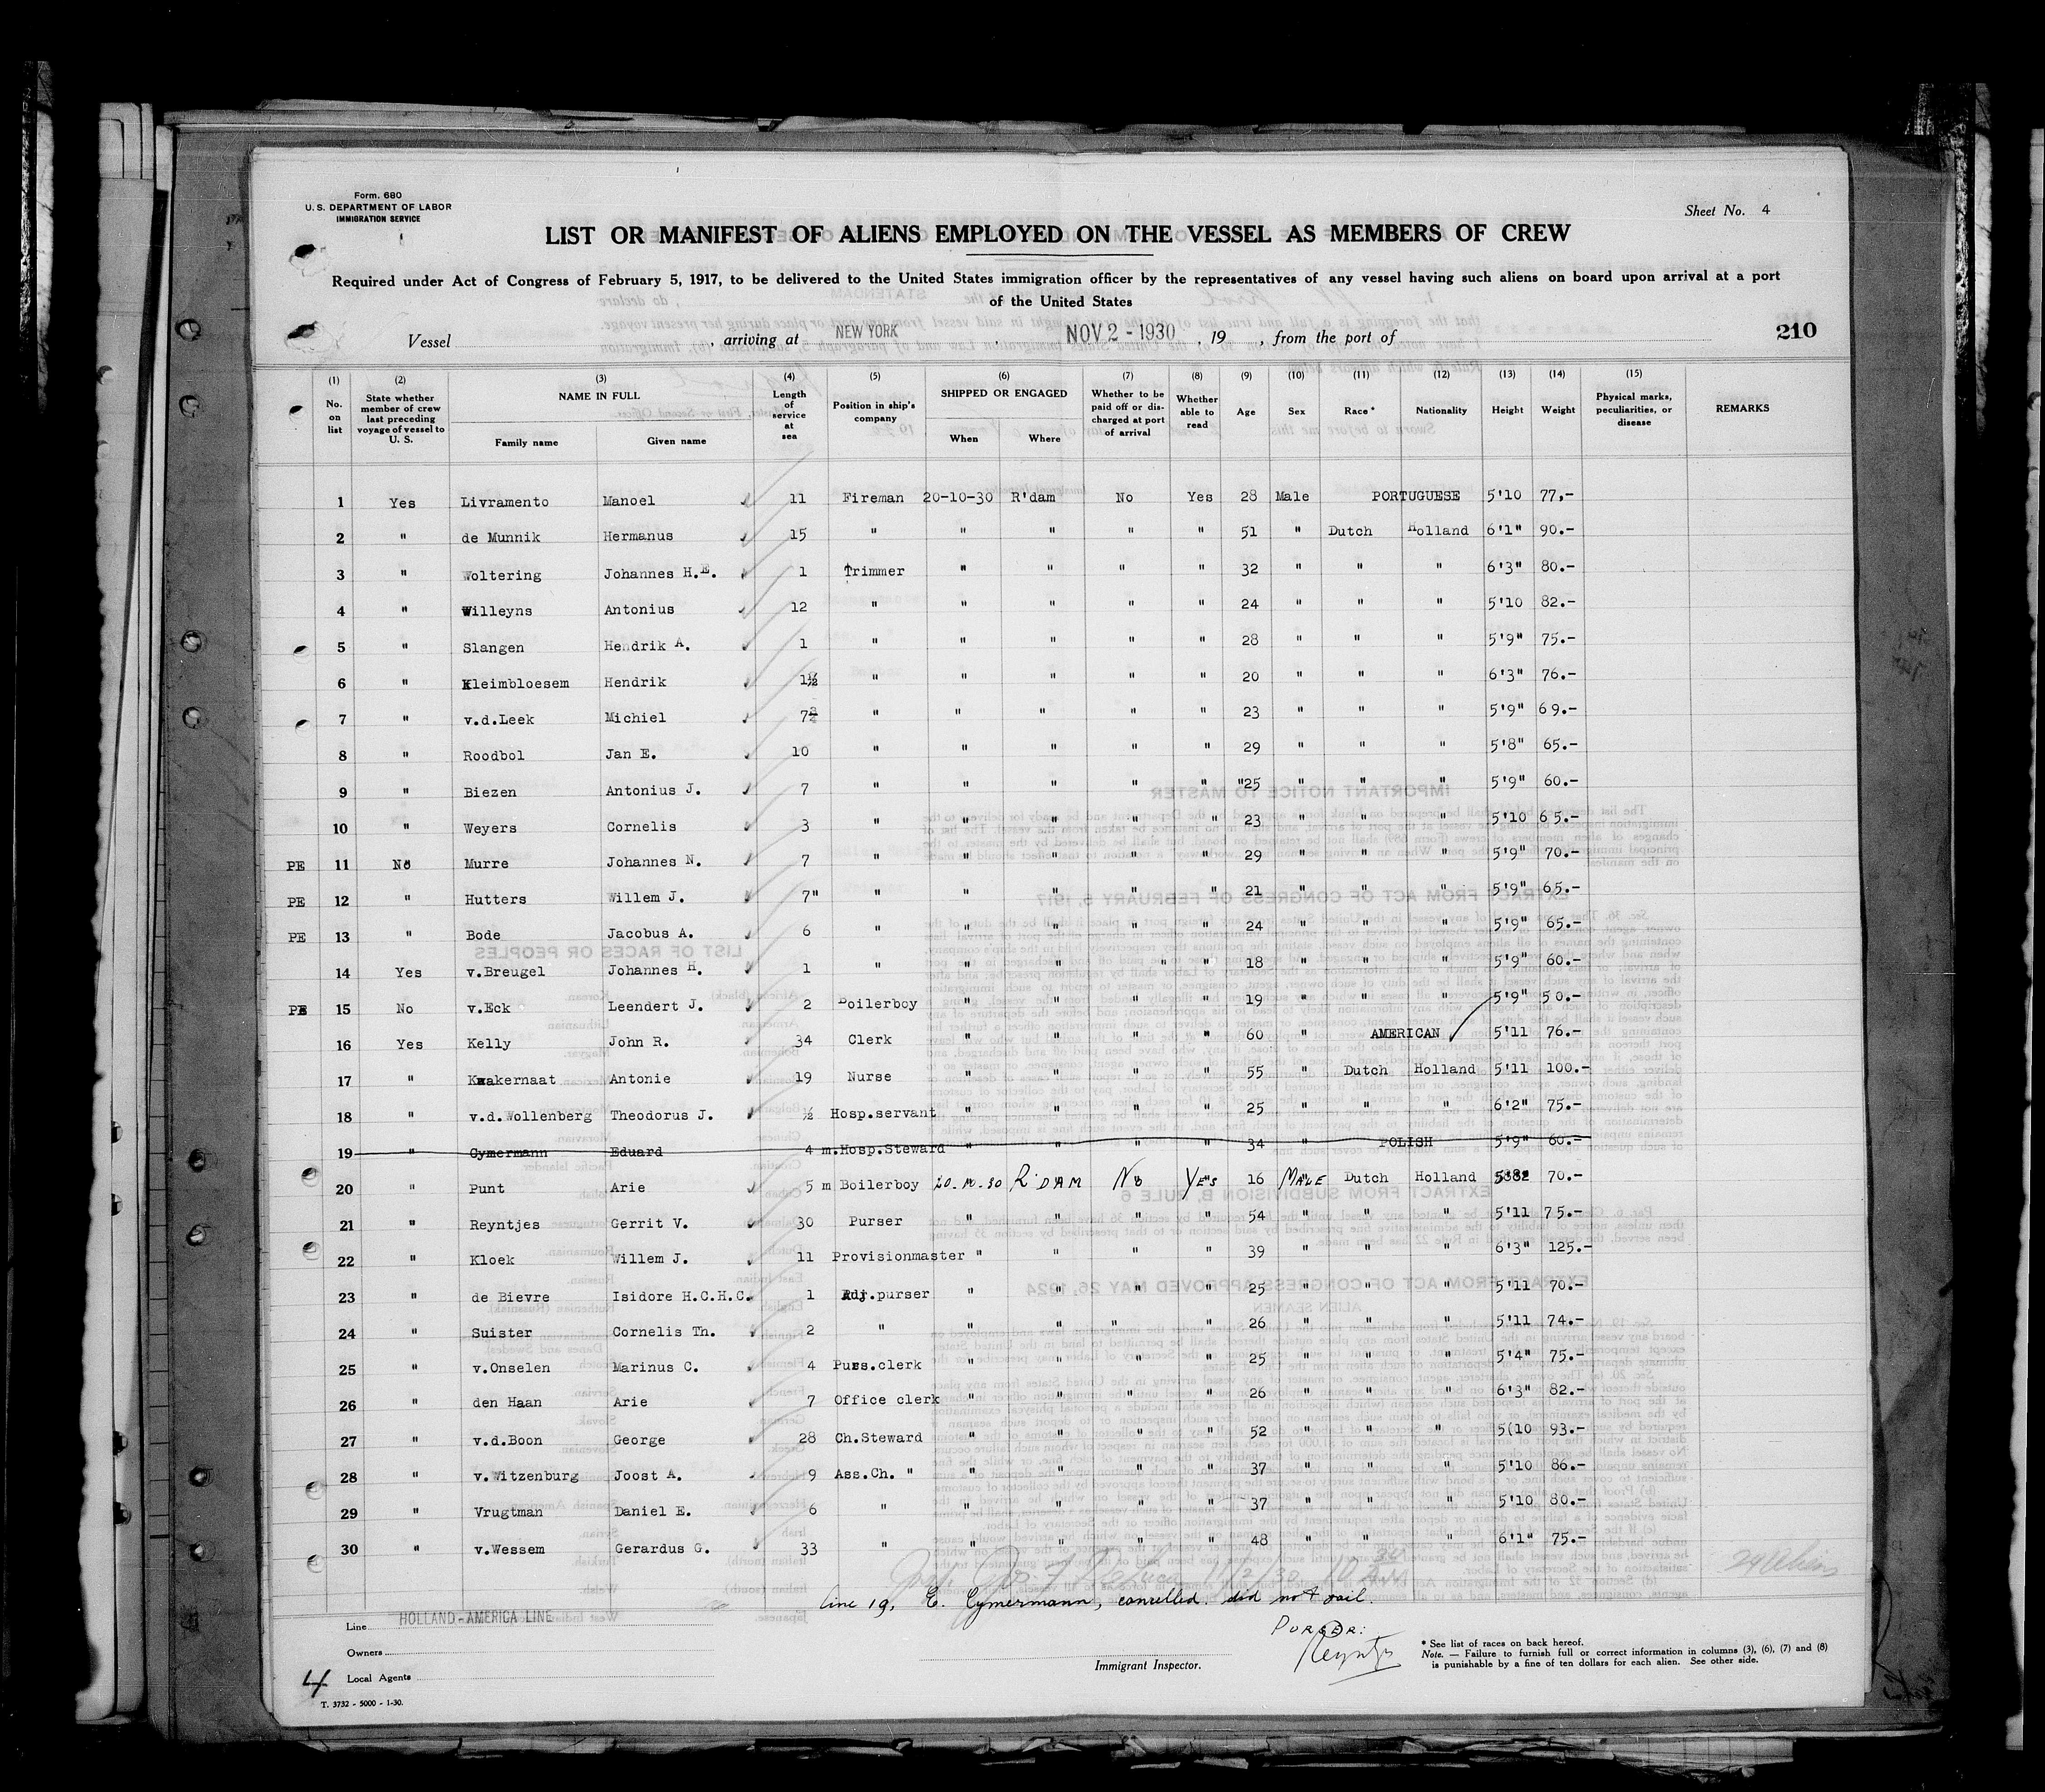 Form. 680
U. S. DEPARTMENT OF LABOR
IMMIGRATION SERVICE
Sheet No. 4
LIST OR MANIFEST OF ALIENS EMPLOYED ON THE VESSEL AS MEMBERS OF CREW
Required under Act of Congress of February 5, 1917, to be delivered to the United States immigration officer by the representatives of any vessel having such aliens on board upon arrival at a port
of the United States
Vessel , arriving at NEW YORK , NOV 2 - 1930 , 19 , from the port of 210
(1) No. on list (2) State whether member of crew last preceding voyage of vessel to U. S. (3) NAME IN FULL Family name Given name (4) Length of service at sea (5) Position in ship's company (6) SHIPPED OR ENGAGED When Where (7) Whether to be paid off or discharged at port of arrival (8) Whether able to read (9) Age (10) Sex (11) Race * (12) Nationality (13) Height (14) Weight (15) Physical marks, peculiarities, or disease REMARKS
1 Yes Livramento Manoel 11 Fireman 20-10-30 R'dam No Yes 28 Male PORTUGUESE 5'10 77,-
2 " de Munnik Hermanus 15 " " " " " 51 " Dutch Holland 6'1" 90.-
3 " Woltering Johannes H.E. 1 Trimmer " " " " 32 " " " 6'3" 80.-
4 " Willeyns Antonius 12 " " " " " 24 " " " 5'10 82.-
5 " Slangen Hendrik A. 1 " " " " " 28 " " " 5'9" 75.-
6 " Kleimbloesem Hendrik 1½ " " " " " 20 " " " 6'3" 76.-
7 " v.d.Leek Michiel 7¾ " " " " " 23 " " " 5'9" 69.-
8 " Roodbol Jan E. 10 " " " " " 29 " " " 5'8" 65.-
9 " Biezen Antonius J. 7 " " " " " "25 " " " 5'9" 60.-
10 " Weyers Cornelis 3 " " " " " 23 " " " 5'10 65.-
PE 11 No Murre Johannes N. 7 " " " " " 29 " " " 5'9" 70.-
PE 12 " Hutters Willem J. 7" " " " " " 21 " " " 5'9" 65.-
PE 13 " Bode Jacobus A. 6 " " " " " 24 " " " 5'9" 65.-
14 Yes v.Breugel Johannes H. 1 " " " " " 18 " " " 5'9" 60.-
PE 15 No v.Eck Leendert J. 2 Boilerboy " " " " 19 " " " 5'9" 50.-
16 Yes Kelly John R. 34 Clerk " " " " 60 " AMERICAN 5'11 76.-
17 " Kwakernaat Antonie 19 Nurse " " " " 55 " Dutch Holland 5'11 100.-
18 " v.d.Wollenberg Theodorus J. ½ Hosp.servant " " " " 25 " " " 6'2" 75.-
19 " Cymermann Eduard 4 m.Hosp.Steward " " " " 34 " POLISH 5'9" 60.-
20 " Punt Arie 5 m Boilerboy 20-10-30 R'DAM No YES 16 MALE Dutch Holland 70.-
21 " Reyntjes Gerrit V. 30 Purser " " " " 54 " " " 5'11 75.-
22 " Kloek Willem J. 11 Provisionmaster " " " " 39 " " " 6'3" 125.-
23 " de Bievre Isidore H.C.H.C. 1 Adj.purser " " " " 25 " " " 5'11 70.-
24 " Suister Cornelis Th. 2 " " " " " 26 " " " 5'11 74.-
25 " v.Onselen Marinus C. 4 Purs.clerk " " " " 25 " " " 5'4" 75.-
26 " den Haan Arie 7 Office clerk " " " " 26 " " " 6'3" 82.-
27 " v.d.Boon George 28 Ch.Steward " " " " 52 " " " 5(10 93.-
28 " v.Witzenburg Joost A. 9 Ass.Ch. " " " " " 37 " " " 5'10 86.-
29 " Vrugtman Daniel E. 6 " " " " " 37 " " " 5'10 80.-
30 " v.Wessem Gerardus G. 33 " " " " " 48 " " " 6'1" 75.-
11/2/30 10 AM
line 19, E. Cymermann, cancelled. did not sail.
PURSER:
Reyntjes
Line HOLLAND-AMERICA LINE
Owners
Local Agents
4
T. 3732 - 5000 - 1-30.
Immigrant Inspector.
* See list of races on back hereof.
Note. — Failure to furnish full or correct information in columns (3), (6), (7) and (8)
is punishable by a fine of ten dollars for each alien. See other side.